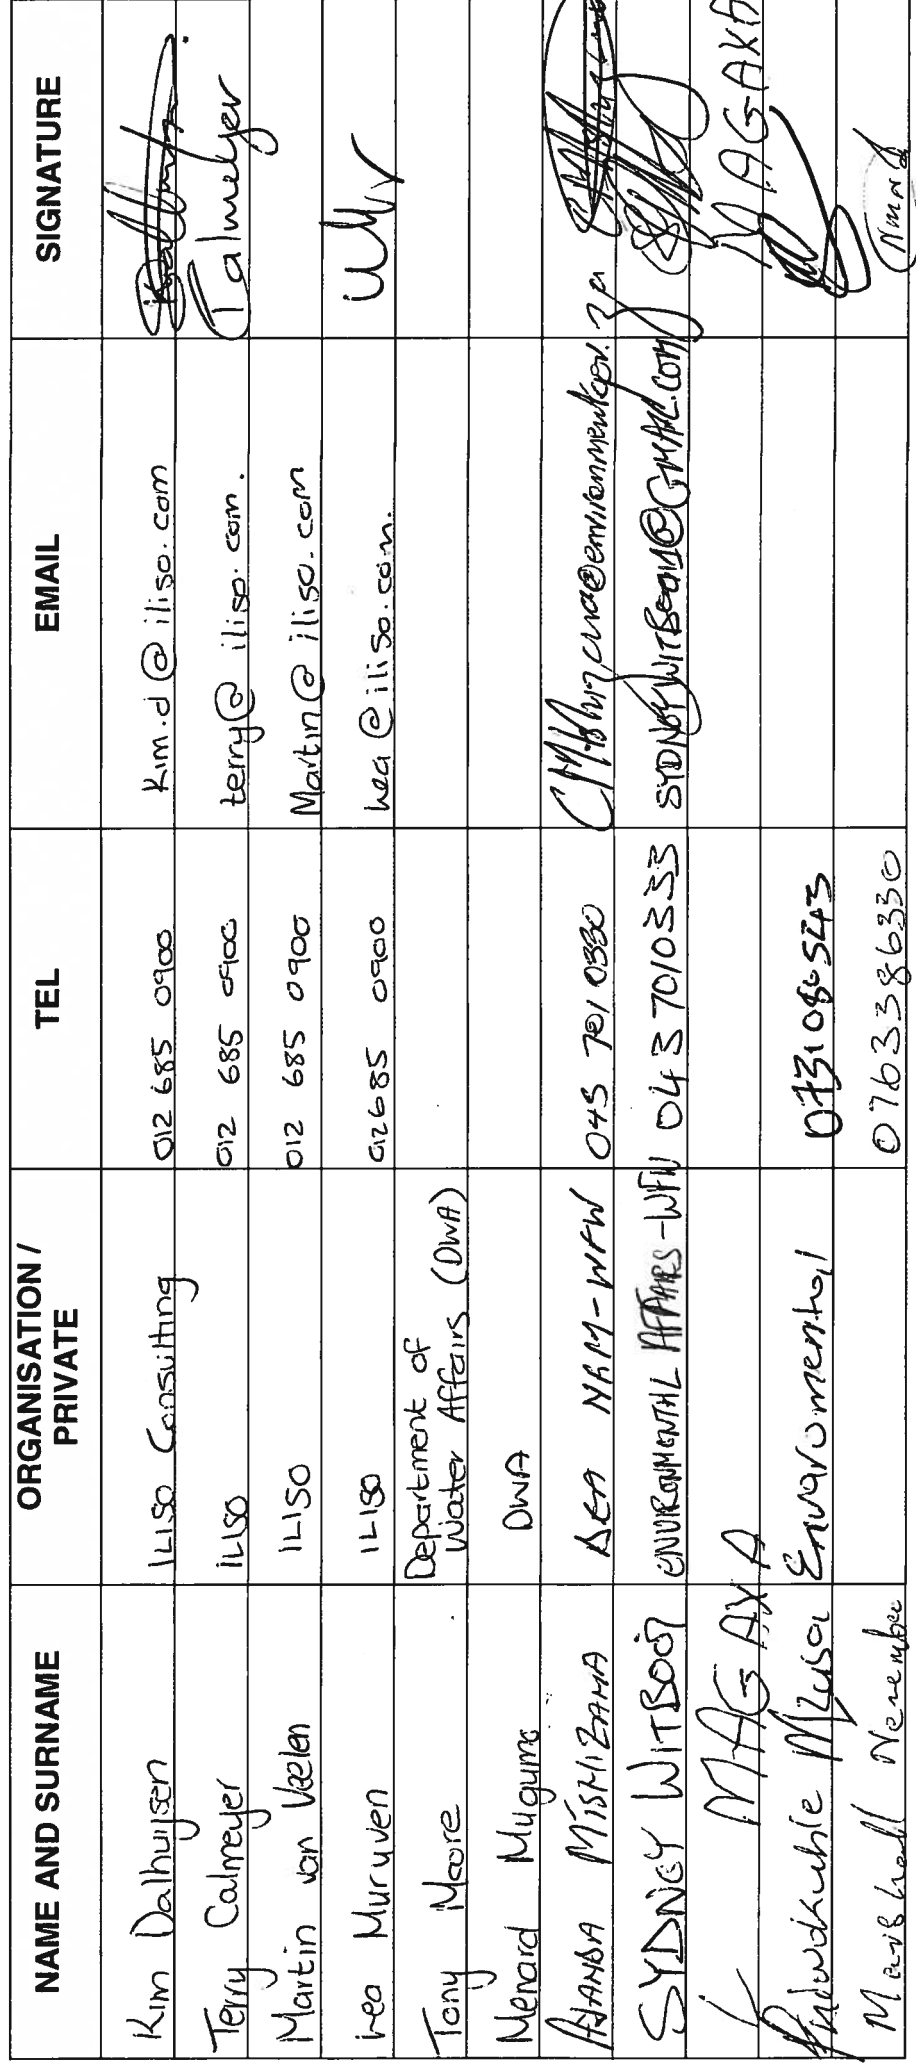 NAME AND SURNAME ORGANISATION / PRIVATE TEL EMAIL SIGNATURE
Kim Dalhuijsen ILISO Consulting 012 685 0900 Kim.d@iliso.com
Terry Calmeyer ILISO 012 685 0900 terry@iliso.com. Talmeyer
Martin van Veelen ILISO 012 685 0900 Martin@iliso.com
Lea Muruven ILISO 012 685 0900 lea@iliso.com.
Tony Moore Department of Water Affairs (DWA)
Menard Mugumo DWA
DEA NRM-WFW 043 701 0330
SYDNEY WITBOOI ENVIRONMENTAL AFFAIRS-WFW 043 7010333
K MAGAXA MAGAXA
Mzusa Envaromental
Marshall 0763386330